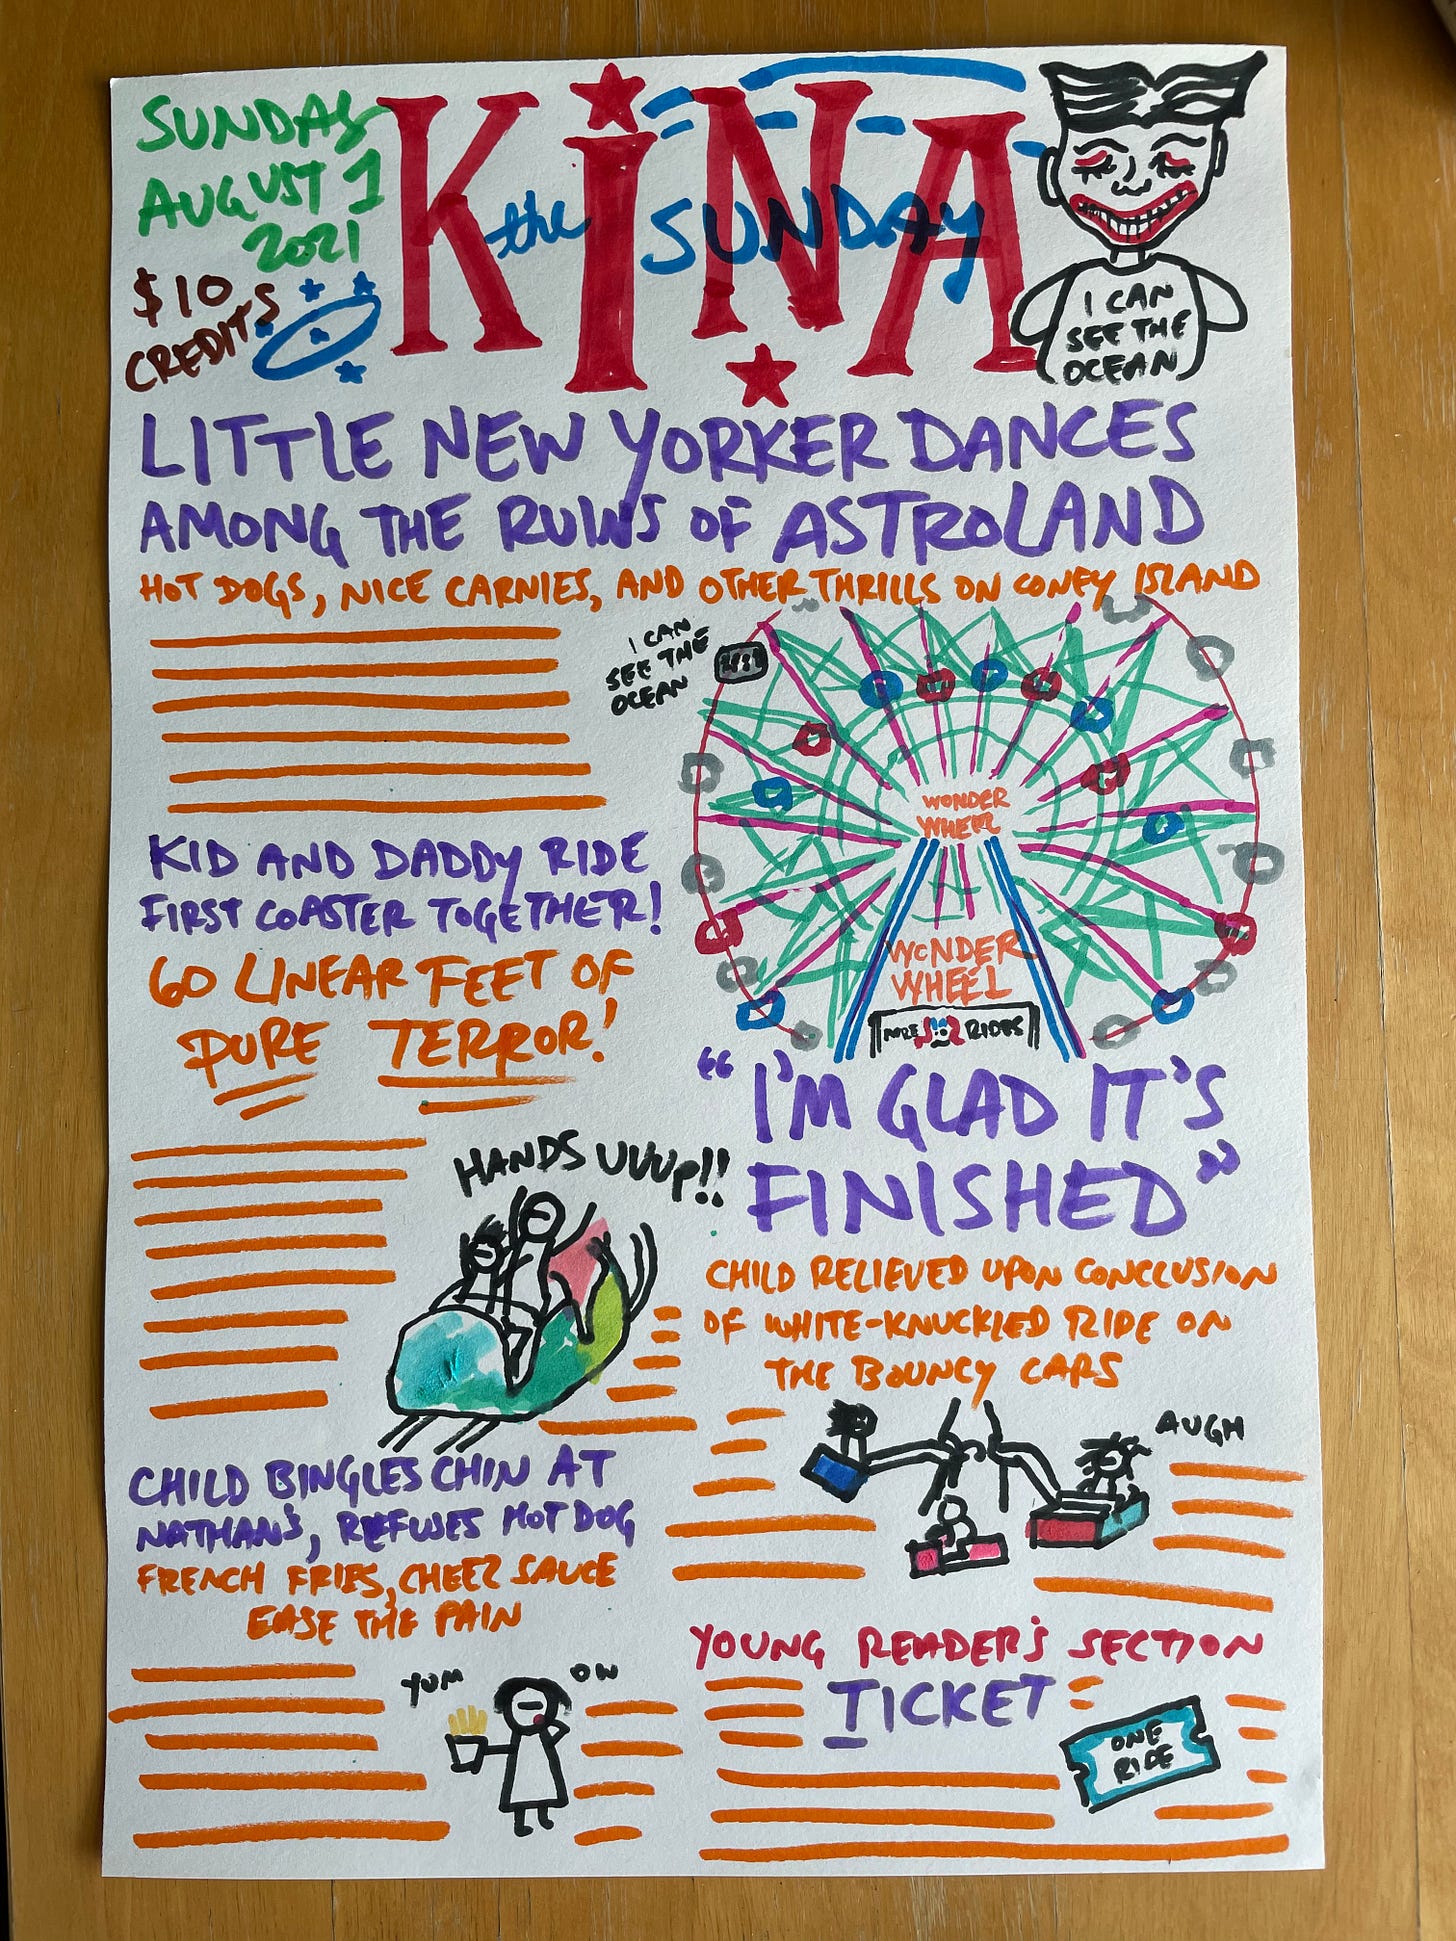 SUNDAY
AUGUST 1
2021
$10
CREDITS
KiNA
the SUNDAY
I CAN
SEE THE
OCEAN
LITTLE NEW YORKER DANCES
AMONG THE RUINS OF ASTROLAND
HOT DOGS, NICE CARNIES, AND OTHER THRILLS ON CONEY ISLAND
I CAN
SEE THE
OCEAN
WONDER
WHEEL
WONDER
WHEEL
RIDES
KID AND DADDY RIDE
FIRST COASTER TOGETHER!
60 LINEAR FEET OF
PURE TERROR!
HANDS UUUP!!
"I'M GLAD IT'S
FINISHED"
CHILD RELIEVED UPON CONCLUSION
OF WHITE-KNUCKLED RIDE ON
THE BOUNCY CARS
AUGH
CHILD BINGLES CHIN AT
NATHAN'S, REFUSES HOT DOG
FRENCH FRIES, CHEEZ SAUCE
EASE THE PAIN
YUM
OW
YOUNG READER'S SECTION
TICKET
ONE
RIDE